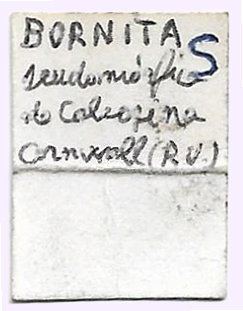 BORNITA S
seudomórfica
de Calcosina
Cornwall (R.U.)